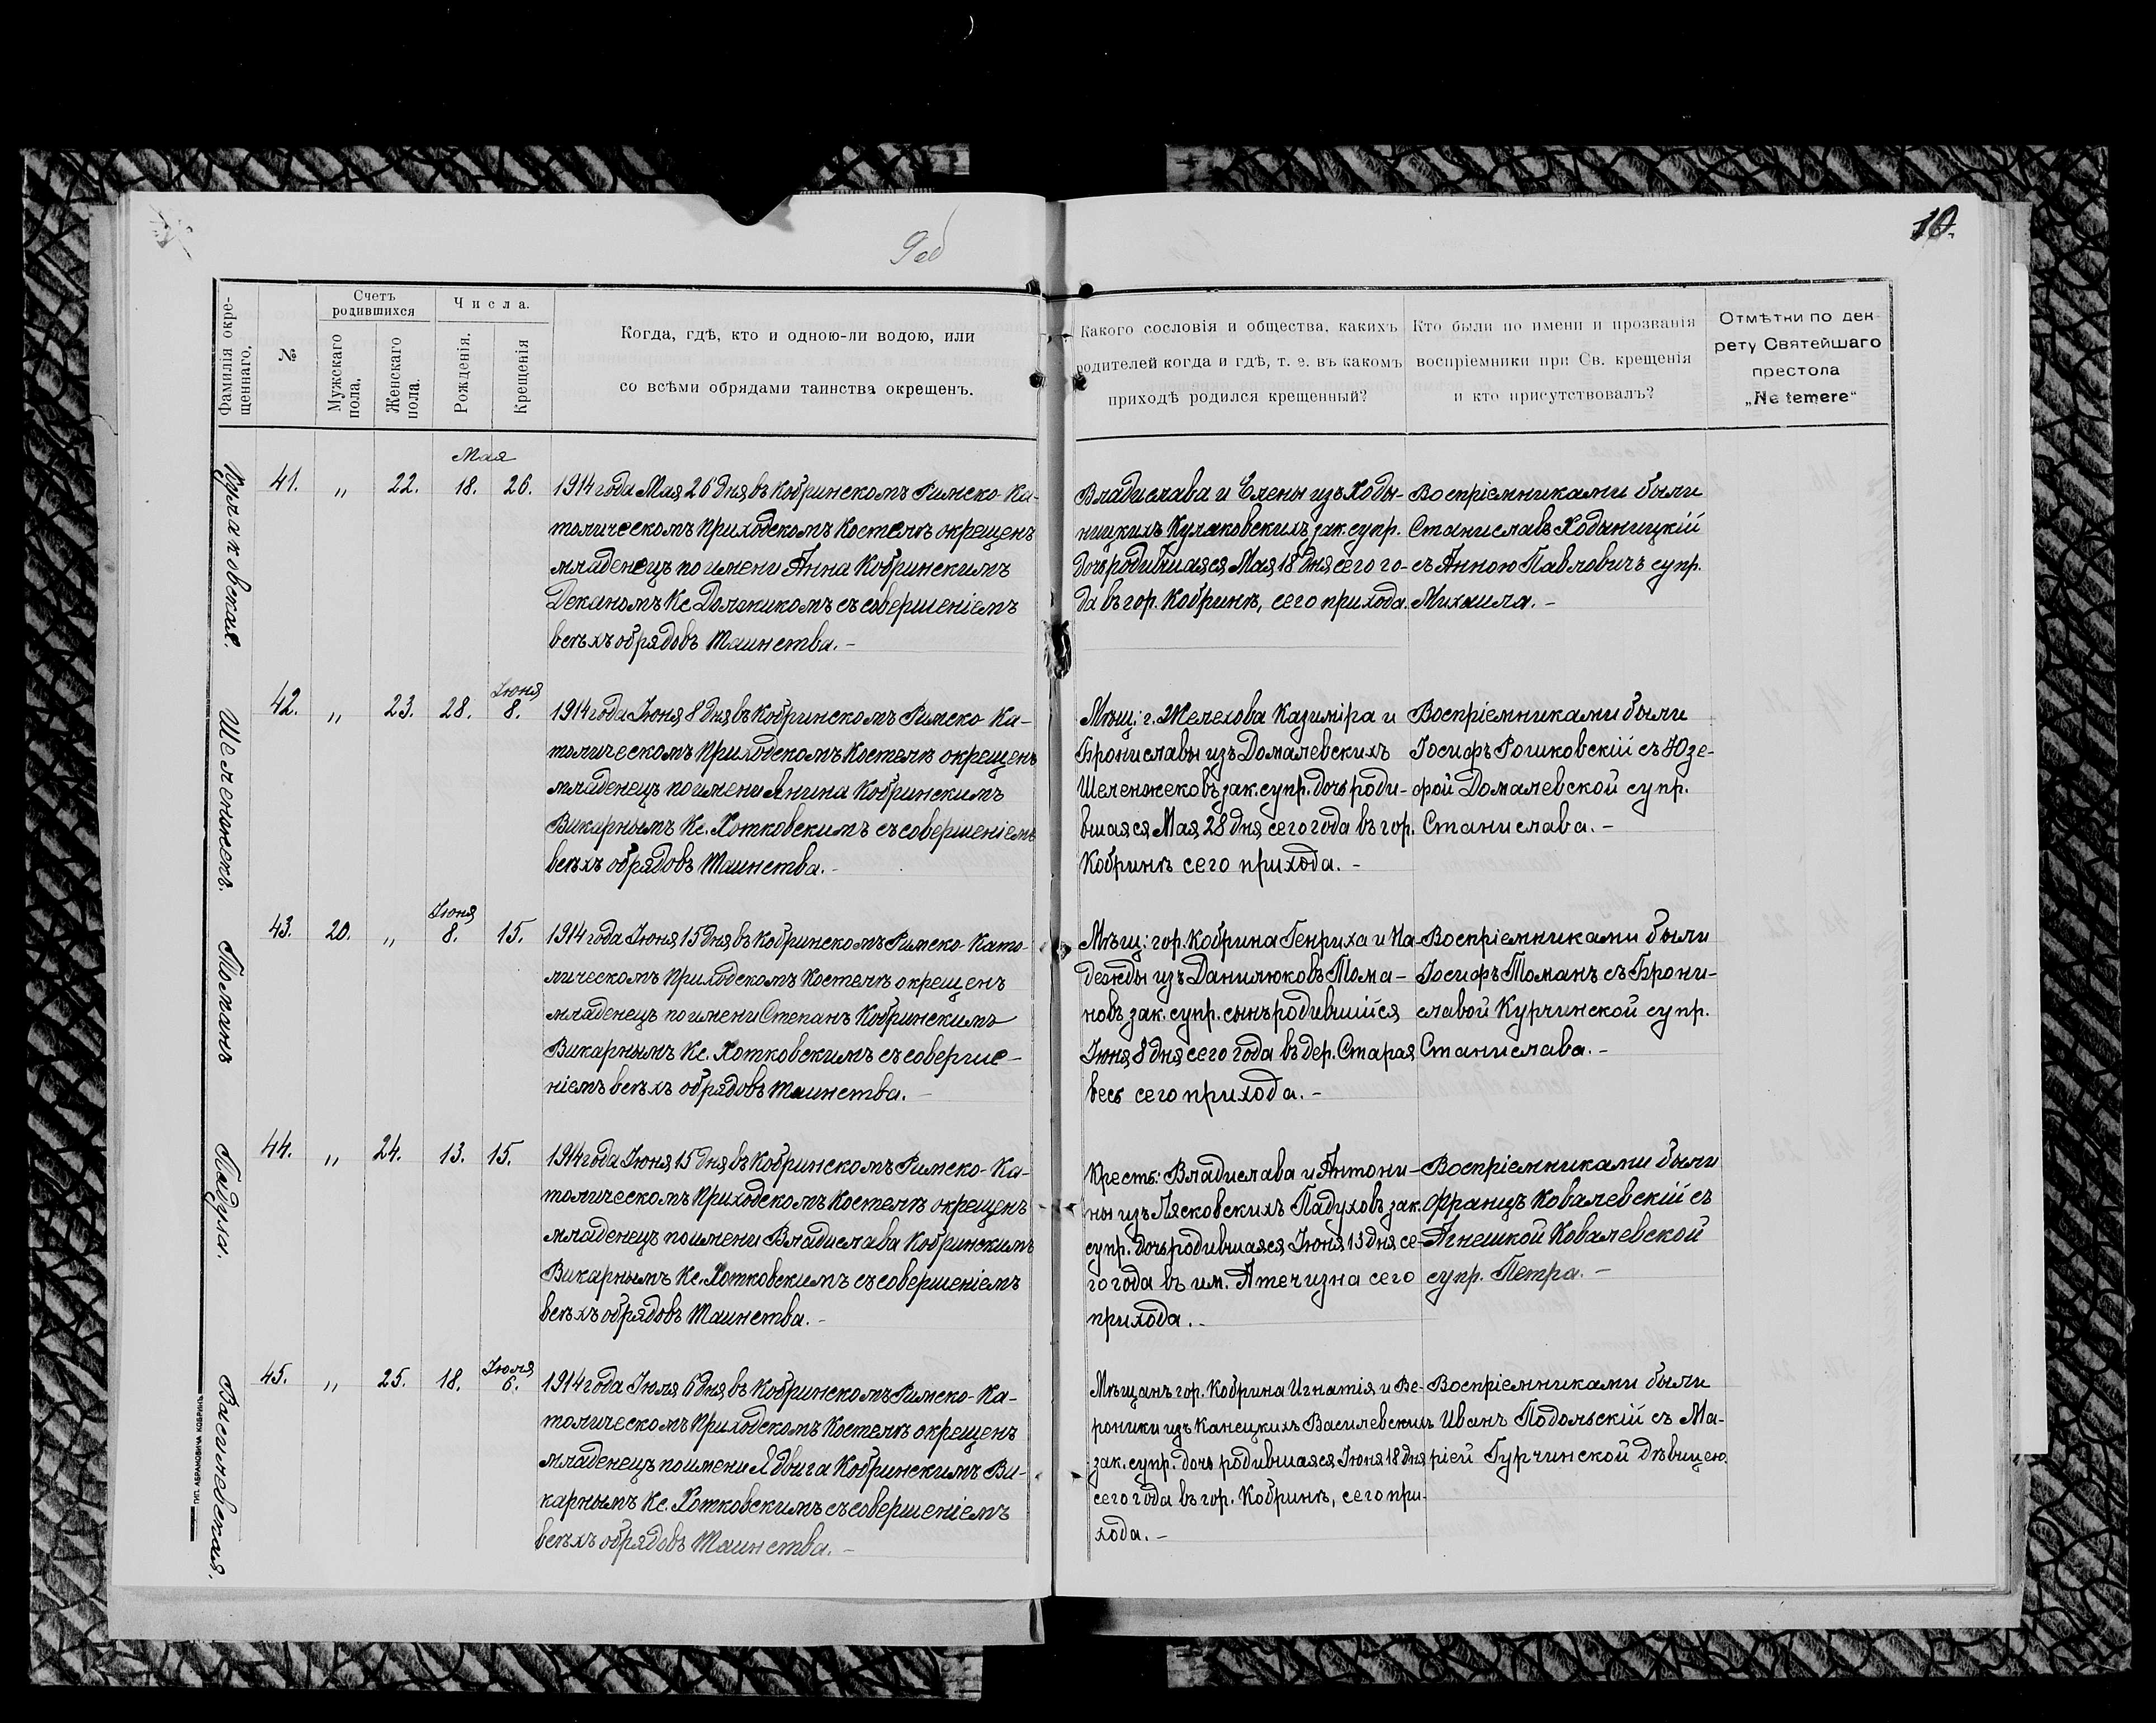 9об
10.
Фамилія окре-
щеннаго.
№
Счетъ
родившихся
Мужскаго
пола.
Женскаго
пола.
Числа.
Рожденія.
Крещенія
Когда, гдѣ, кто и одною-ли водою, или
со всѣми обрядами таинства окрещенъ.
Какого сословія и общества, какихъ
родителей когда и гдѣ, т. е. въ какомъ
приходѣ родился крещенный?
Кто были по имени и прозванія
воспріемники при Св. крещенія
и кто присутствовалъ?
Отмѣтки по дек-
рету Святейшаго
престола
„Ne temere“
Кулаковская.
41. " 22. Мая 18. 26.
1914 года Мая 26 дня въ Кобринскомъ Римско-Ка-
толическомъ Приходскомъ Костелѣ окрещенъ
младенецъ по имени Анна Кобринскимъ
Деканомъ Кс. Долэникомъ съ совершеніемъ
всѣхъ обрядовъ Таинства.-
Владислава и Елены изъ Ходы-
ницкихъ Кулаковскихъ зак. супр.
дочь родившаяся Мая 18 дня сего го-
да въ гор. Кобринѣ, сего прихода.
Воспріемниками были
Станиславъ Ходыницкій
съ Анною Павловичъ супр.
Михаила.-
Шеленжекъ.
42. " 23. 28. Іюня 8.
1914 года Іюня 8 дня въ Кобринскомъ Римско-Ка-
толическомъ Приходскомъ Костелѣ окрещенъ
младенецъ по имени Янина Кобринскимъ
Викарнымъ Кс. Хотковскимъ съ совершеніемъ
всѣхъ обрядовъ Таинства.-
Мѣщ: г. Желехова Казиміра и
Брониславы изъ Домалевскихъ
Шеленжековъ зак. супр. дочь роди-
вшаяся Мая 28 дня сего года въ гор.
Кобринѣ сего прихода.-
Воспріемниками были
Іосифъ Рошковскій съ Юзе-
фой Домалевской супр.
Станислава.-
Томанъ
43. 20. " Іюня 8. 15.
1914 года Іюня 15 дня въ Кобринскомъ Римско-Като-
лическомъ Приходскомъ Костелѣ окрещенъ
младенецъ по имени Степанъ Кобринскимъ
Викарнымъ Кс. Хотковскимъ съ соверше-
ніемъ всѣхъ обрядовъ Таинства.-
Мѣщ: гор. Кобрина Генриха и На-
дежды изъ Данилюковъ Тома-
новъ зак. супр. сынъ родившійся
Іюня 8 дня сего года въ дер. Старая
весь сего прихода.-
Воспріемниками были
Іосифъ Томанъ съ Брони-
славой Курчинской супр.
Станислава.-
Падуха.
44. " 24. 13. 15.
1914 года Іюня 15 дня въ Кобринскомъ Римско-Ка-
толическомъ Приходскомъ Костелѣ окрещенъ
младенецъ по имени Владислава Кобринскимъ
Викарнымъ Кс. Хотковскимъ съ совершеніемъ
всѣхъ обрядовъ Таинства.-
Крестъ: Владислава и Антони-
ны изъ Лясковскихъ Падуховъ зак.
супр. дочь родившаяся Іюня 13 дня се-
го года въ им. Атечизна сего
прихода.-
Воспріемниками были
Францъ Ковалевскій съ
Агнешкой Ковалевской
супр. Петра.-
Василевская.
45. " 25. 18. Іюля 6.
1914 года Іюля 6 дня въ Кобринскомъ Римско-Ка-
толическомъ Приходскомъ Костелѣ окрещенъ
младенецъ по имени Ядвига Кобринскимъ Ви-
карнымъ Кс. Хотковскимъ съ совершеніемъ
всѣхъ обрядовъ Таинства.-
Мѣщанъ гор. Кобрина Игнатія и Ве-
роники изъ Канецкихъ Василевскихъ
зак. супр. дочь родившаяся Іюня 18 дня
сего года въ гор. Кобринѣ, сего при-
хода.-
Воспріемниками были
Иванъ Подольскій съ Ма-
ріей Гурчинской дѣвицею.
ТИП. АБРАМОВИЧА КОБРИНЪ